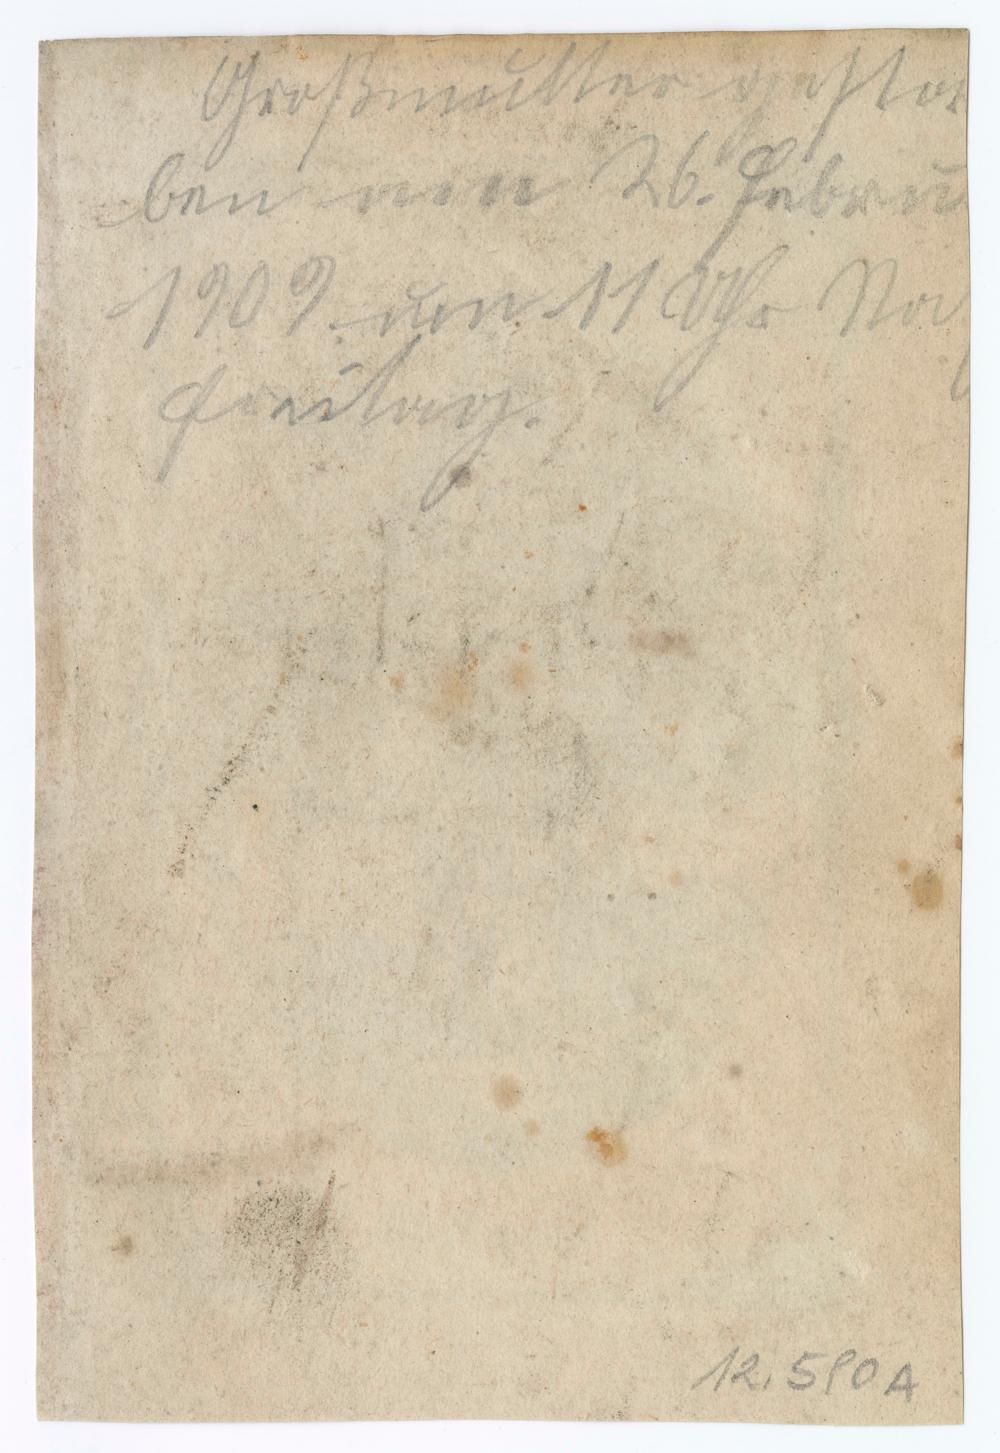 Großmutter gestor
ben am 26. Febru
1909 um 11 Uhr Na
Freitag.
12.590A